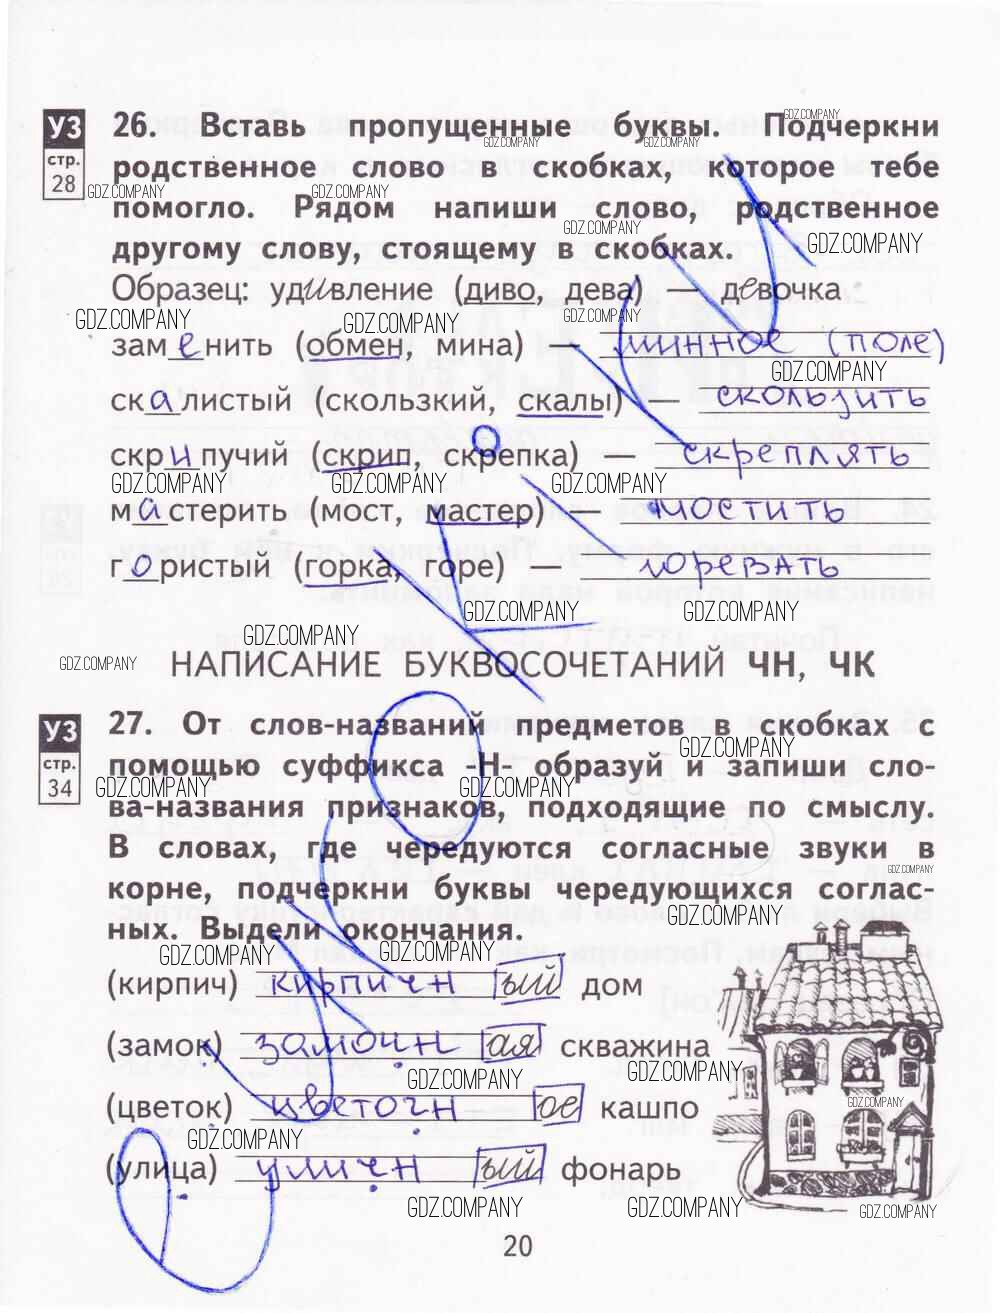 УЗ
стр.
28
26. Вставь пропущенные буквы. Подчеркни
родственное слово в скобках, которое тебе
помогло. Рядом напиши слово, родственное
другому слову, стоящему в скобках.
Образец: удивление (диво, дева) — девочка
заменить (обмен, мина) — минное (поле)
скалистый (скользкий, скалы) — скользить
скрипучий (скрип, скрепка) — скреплять
мастерить (мост, мастер) — мостить
гористый (горка, горе) — горевать
НАПИСАНИЕ БУКВОСОЧЕТАНИЙ ЧН, ЧК
УЗ
стр.
34
27. От слов-названий предметов в скобках с
помощью суффикса -Н- образуй и запиши сло-
ва-названия признаков, подходящие по смыслу.
В словах, где чередуются согласные звуки в
корне, подчеркни буквы чередующихся соглас-
ных. Выдели окончания.
(кирпич) кирпичный дом
(замок) замочная скважина
(цветок) цветочное кашпо
(улица) уличный фонарь
20
GDZ.COMPANY